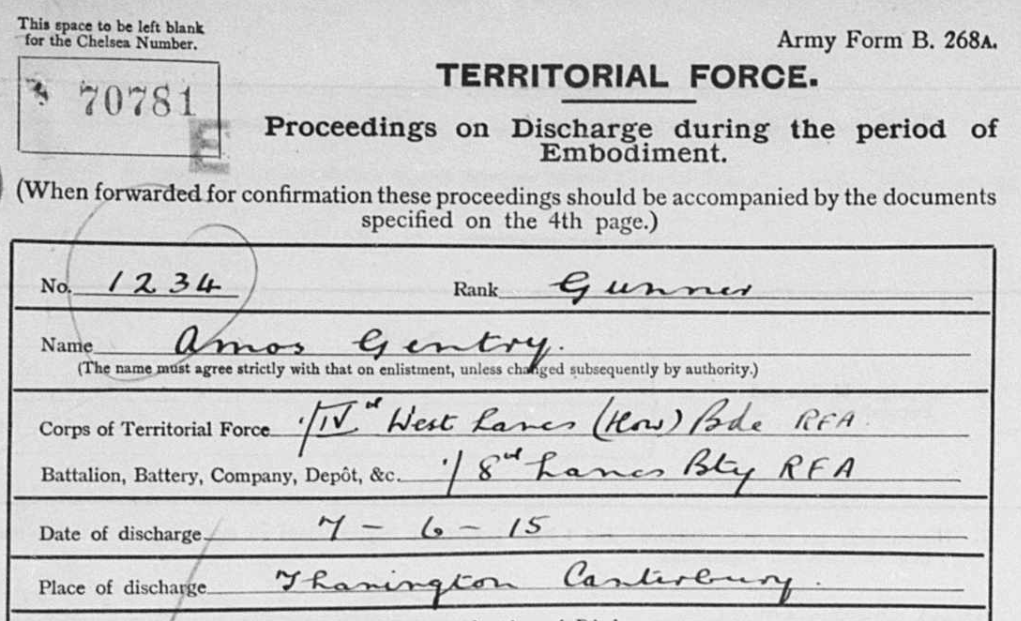 This space to be left blank
for the Chelsea Number.
Army Form B. 268A.
70781
E
TERRITORIAL FORCE.
Proceedings on Discharge during the period of
Embodiment.
(When forwarded for confirmation these proceedings should be accompanied by the documents
specified on the 4th page.)
No. 1234 Rank Gunner
Name Amos Gentry.
(The name must agree strictly with that on enlistment, unless changed subsequently by authority.)
Corps of Territorial Force 1/IV West Lancs (How) Bde RFA
Battalion, Battery, Company, Depôt, &c. 1/8 Lancs Bty RFA
Date of discharge 7 - 6 - 15
Place of discharge Thanington Canterbury.